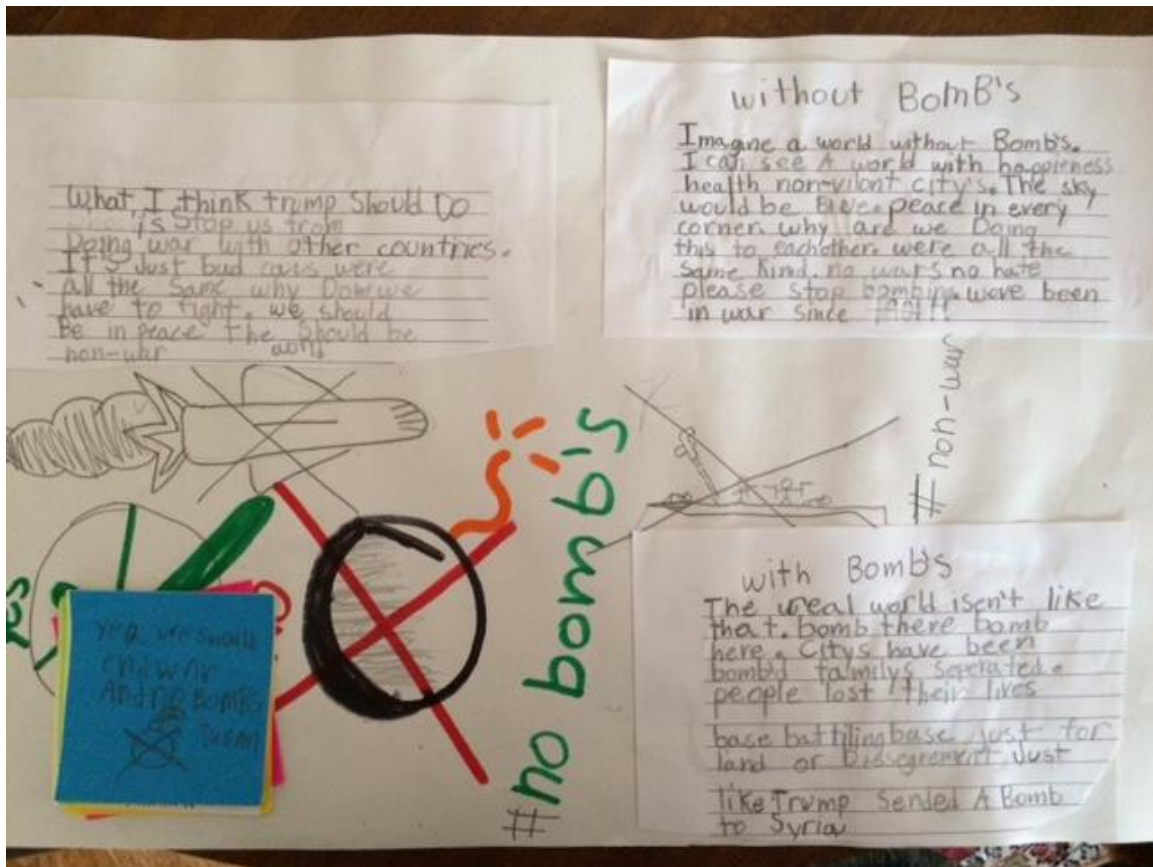 What I think trump Should Do
is Stop us from
Doing war with other countries.
It's Just bad caus were
all the Same why Do we
have to fight. we should
Be in peace the world Should be
non-war
without BomB's
Imagne a world without Bomb's.
I can see A world with happieness
health non-vilont city's. The sky
would be Blue. peace in every
corner. why are we Doing
this to eachother. were all the
Same Kind. no wars no hate
please stop bombing. wove been
in war since
#non-war
#no bomb's
yes
with Bomb's
The ureal world isen't like
that. bomb there bomb
here. Citys have been
bomb'd familys seperated.
people lost their lives
base battling base Just for
land or Dissegrement Just
like Trump Sended A Bomb
to Syria
Yea we should
end war
And no Bombs